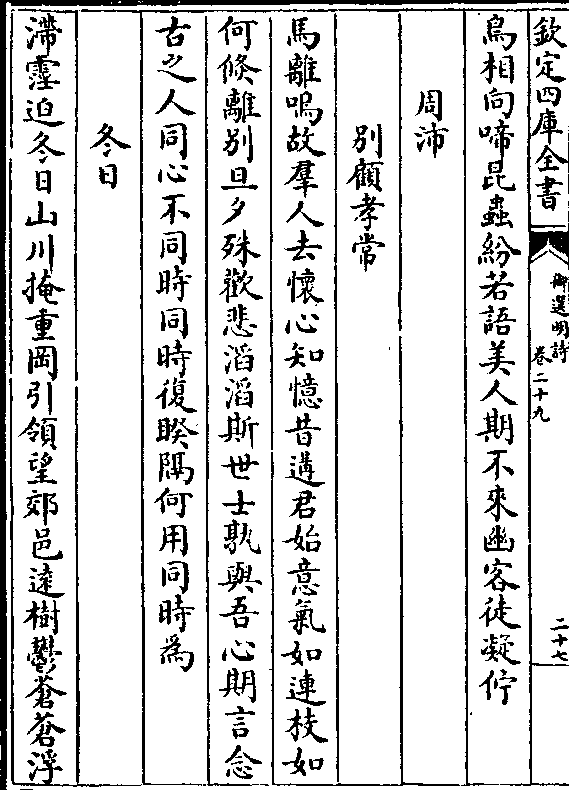 欽定四庫全書
御選明詩
卷二十九
二十七
鳥相向啼昆蟲紛若語美人期不來幽客徒凝佇
周沛
別顧孝常
馬離鳴故羣人去懷心知憶昔遘君始意氣如連枝如
何倏離別旦夕殊歡悲滔滔斯世士孰與吾心期言念
古之人同心不同時同時復睽隔何用同時為
冬日
滯霪迫冬日山川掩重岡引領望郊邑遠樹鬱蒼蒼浮